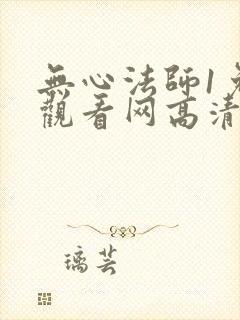 無心法師1免
觀看网高清
璃芸